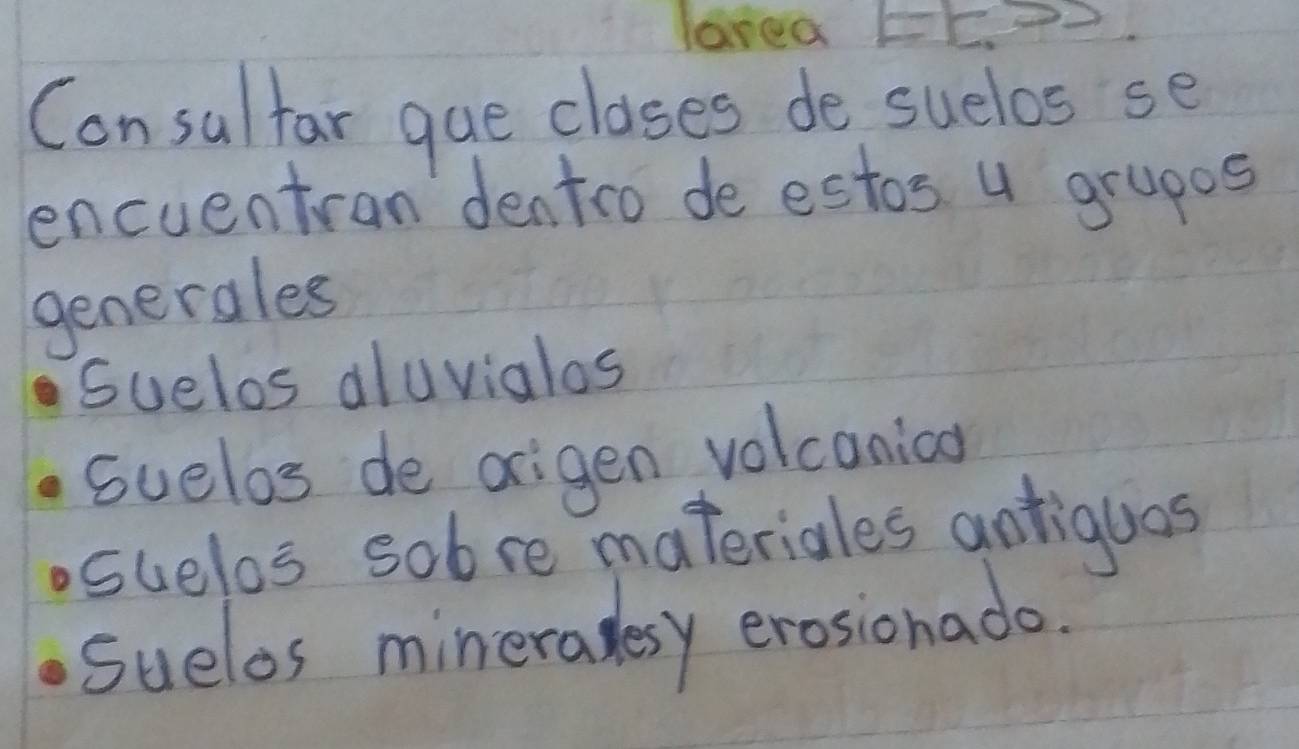 Tarea EE.SS.
Consultar que clases de suelos se
encuentran dentro de estos 4 grupos
generales
• Suelos aluviales
• Suelos de origen volcanico
• Suelos sobre materiales antiguos
• Suelos minerales y erosionado.